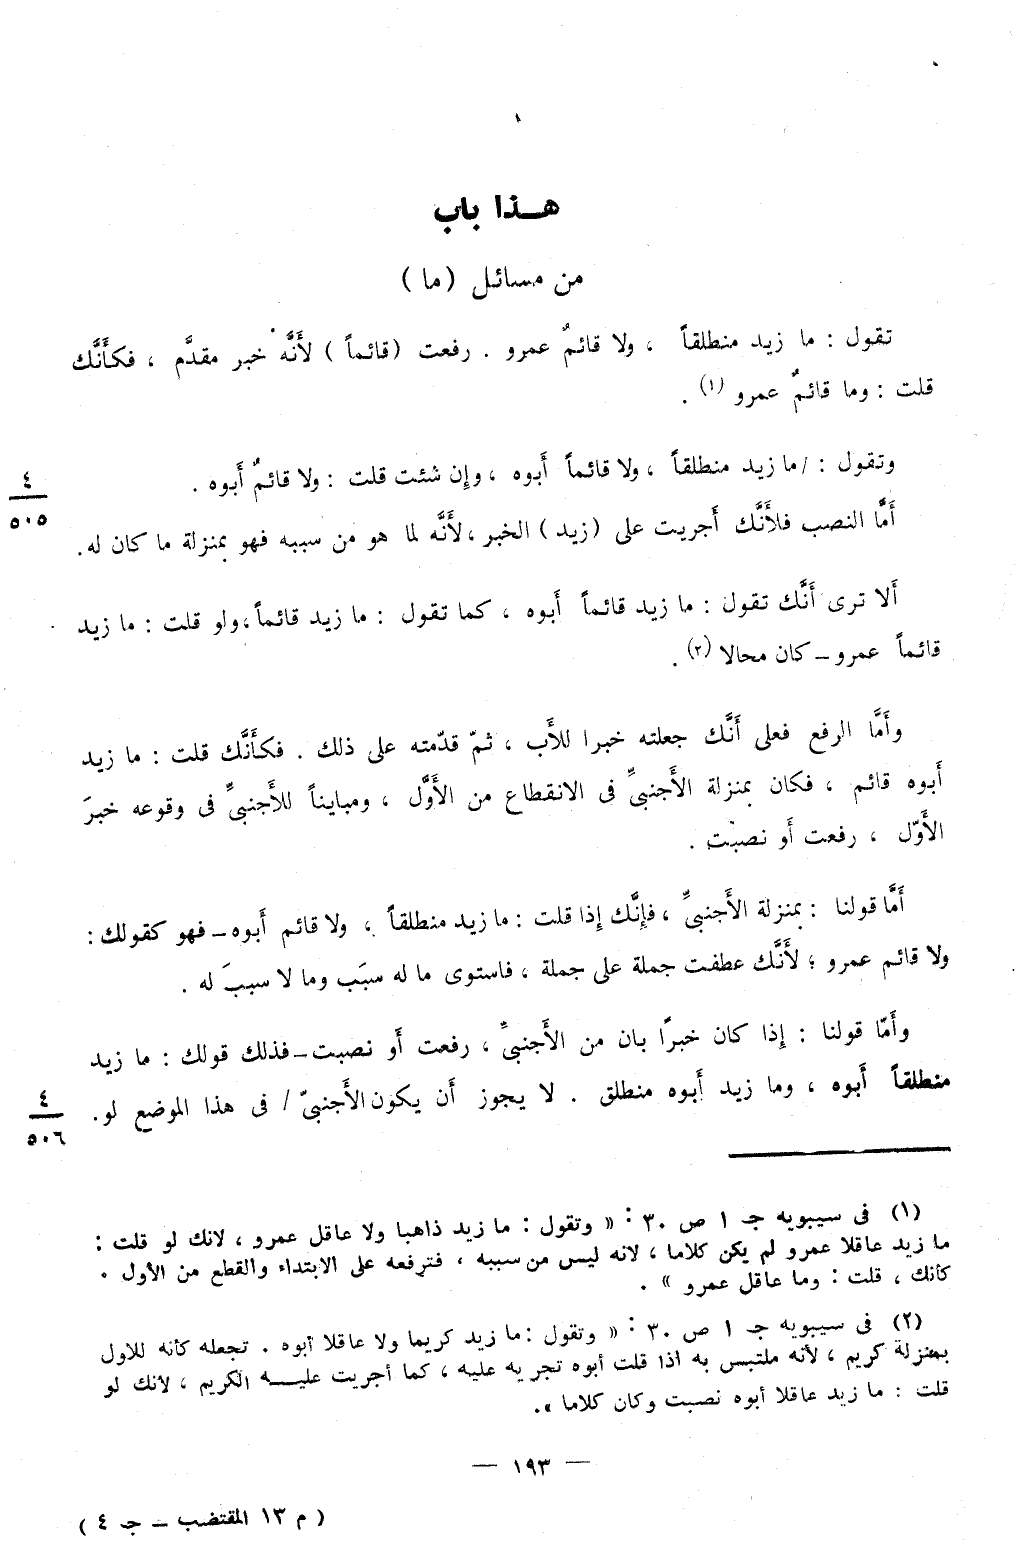 هـذا باب
من مسائل (ما)
تقول : ما زيد منطلقاً ، ولا قائمٌ عمرو . رفعت (قائماً) لأَنَّه خبر مقدَّم ، فكأَنَّك
قلت : وما قائمٌ عمرو (١) .
وتقول : /ما زيد منطلقاً ، ولا قائماً أَبوه ، وإِن شئت قلت : ولا قائمٌ أَبوه .
٤
٥٠٥
أَمَّا النصب فلأَنَّك أَجريت على (زيد) الخبر ، لأَنَّه لما هو من سببه فهو بمنزلة ما كان له.
أَلا ترى أَنَّك تقول : ما زيد قائماً أَبوه ، كما تقول : ما زيد قائماً، ولو قلت : ما زيد
قائماً عمرو – كان محالا (٢) .
وأَمَّا الرفع فعلى أَنَّك جعلته خبرا للأَب ، ثمّ قدّمته على ذلك . فكأَنَّك قلت : ما زيد
أَبوه قائم ، فكان بمنزلة الأَجنبىِّ فى الانقطاع من الأَوَّل ، ومبايناً للأَجنبىِّ فى وقوعه خبرَ
الأَوّل ، رفعت أَو نصبت .
أَمَّا قولنا : بمنزلة الأَجنبىِّ ، فإِنَّك إِذا قلت : ما زيد منطلقاً ، ولا قائم أَبوه – فهو كقولك :
ولا قائم عمرو ؛ لأَنَّك عطفت جملة على جملة ، فاستوى ما له سبَب وما لا سببَ له .
وأَمّا قولنا : إِذا كان خبرًا بان من الأَجنبىِّ ، رفعت أَو نصبت – فذلك قولك : ما زيد
منطلقاً أَبوه ، وما زيد أَبوه منطلق . لا يجوز أَن يكون الأَجنبىّ / فى هذا الموضع لو.
٤
٥٠٦
(١) فى سيبويه جـ ١ ص ٣٠ : « وتقول : ما زيد ذاهبا ولا عاقل عمرو ، لانك لو قلت :
ما زيد عاقلا عمرو لم يكن كلاما ، لانه ليس من سببه ، فترفعه على الابتداء والقطع من الأول ٠
كأنك ، قلت : وما عاقل عمرو » .
(٢) فى سيبويه جـ ١ ص ٣٠ : « وتقول : ما زيد كريما ولا عاقلا أبوه . تجعله كأنه للاول
بمنزلة كريم ، لأنه ملتبس به اذا قلت أبوه تجريه عليه ، كما أجريت عليـــه الكريم ، لأنك لو
قلت : ما زيد عاقلا أبوه نصبت وكان كلاما ».
— ١٩٣ —
( م ١٣ المقتضب – جـ ٤ )